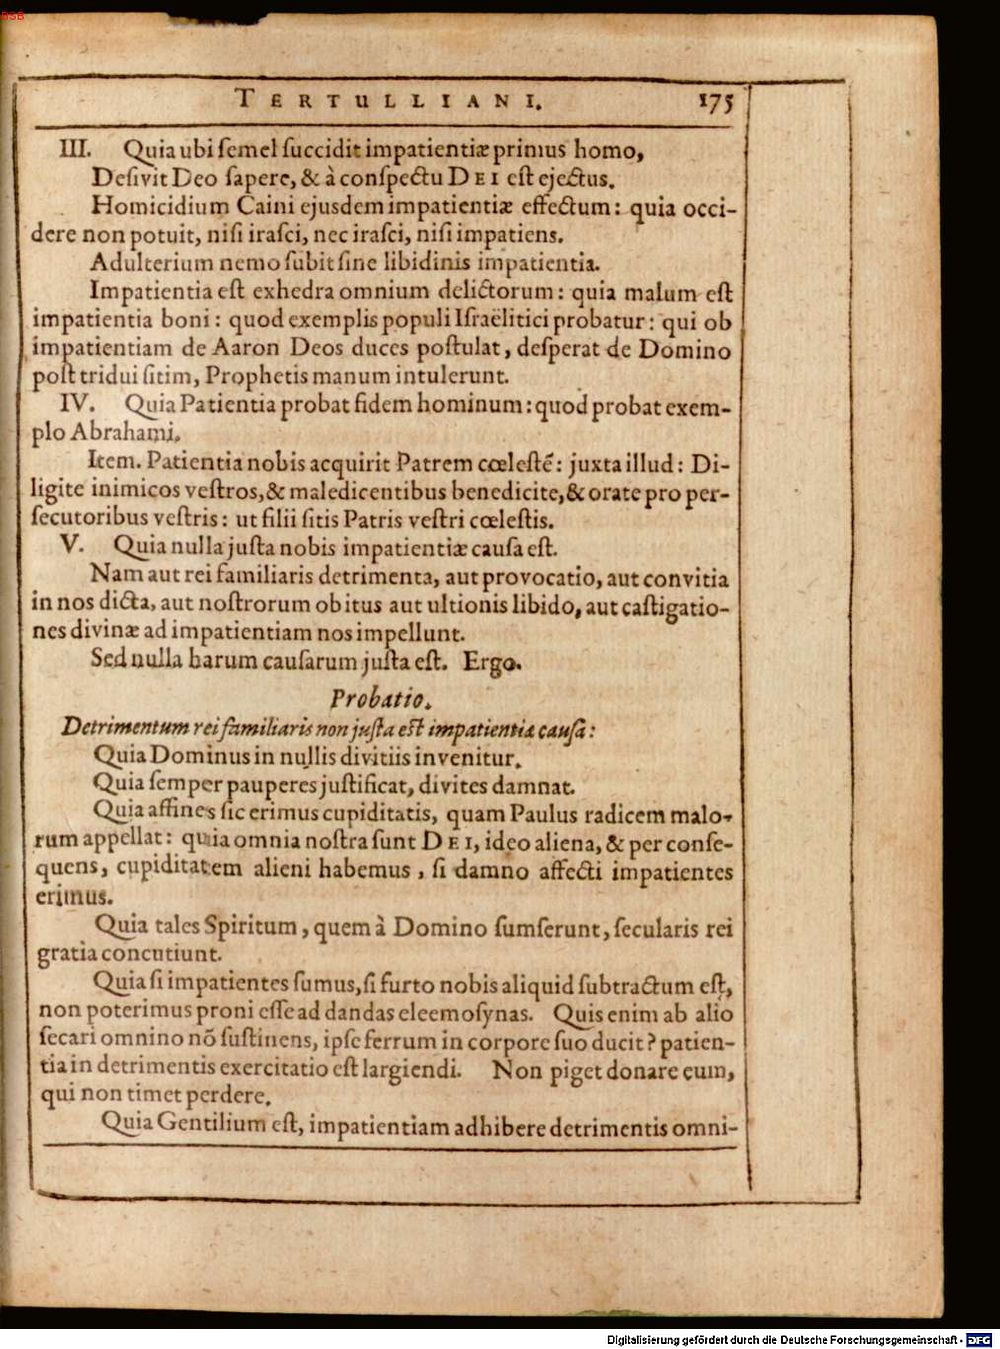 BSB
TERTULLIANI. 175
III. Quia ubi semel succidit impatientiæ primus homo,
Desivit Deo sapere, & à conspectu DEI est ejectus.
Homicidium Caini ejusdem impatientiæ effectum: quia occi-
dere non potuit, nisi irasci, nec irasci, nisi impatiens.
Adulterium nemo subit sine libidinis impatientia.
Impatientia est exhedra omnium delictorum: quia malum est
impatientia boni: quod exemplis populi Israëlitici probatur: qui ob
impatientiam de Aaron Deos duces postulat, desperat de Domino
post tridui sitim, Prophetis manum intulerunt.
IV. Quia Patientia probat fidem hominum: quod probat exem-
plo Abrahami.
Item. Patientia nobis acquirit Patrem cœlestē: juxta illud: Di-
ligite inimicos vestros, & maledicentibus benedicite, & orate pro per-
secutoribus vestris: ut filii sitis Patris vestri cœlestis.
V. Quia nulla justa nobis impatientiæ causa est.
Nam aut rei familiaris detrimenta, aut provocatio, aut convitia
in nos dicta, aut nostrorum obitus aut ultionis libido, aut castigatio-
nes divinæ ad impatientiam nos impellunt.
Sed nulla harum causarum justa est. Ergo.
Probatio.
Detrimentum rei familiaris non justa est impatientiæ causa:
Quia Dominus in nullis divitiis invenitur.
Quia semper pauperes justificat, divites damnat.
Quia affines sic erimus cupiditatis, quam Paulus radicem malo-
rum appellat: quia omnia nostra sunt DEI, ideo aliena, & per conse-
quens, cupiditatem alieni habemus, si damno affecti impatientes
erimus.
Quia tales Spiritum, quem à Domino sumserunt, secularis rei
gratia concutiunt.
Quia si impatientes sumus, si furto nobis aliquid subtractum est,
non poterimus proni esse ad dandas eleemosynas. Quis enim ab alio
secari omnino nō sustinens, ipse ferrum in corpore suo ducit? patien-
tia in detrimentis exercitatio est largiendi. Non piget donare eum,
qui non timet perdere.
Quia Gentilium est, impatientiam adhibere detrimentis omni-
Digitalisierung gefördert durch die Deutsche Forschungsgemeinschaft - DFG